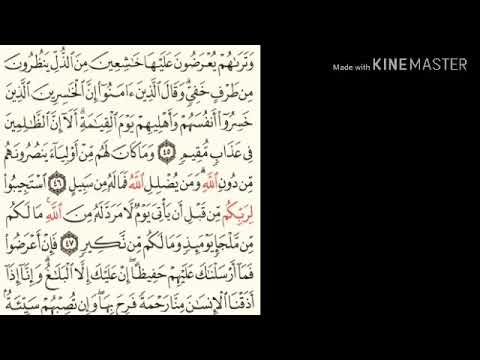 وَتَرَىٰهُمْ يُعْرَضُونَ عَلَيْهَا خَٰشِعِينَ مِنَ ٱلذُّلِّ يَنظُرُونَ
مِن طَرْفٍ خَفِيٍّۗ وَقَالَ ٱلَّذِينَ ءَامَنُوٓا۟ إِنَّ ٱلْخَٰسِرِينَ ٱلَّذِينَ
خَسِرُوٓا۟ أَنفُسَهُمْ وَأَهْلِيهِمْ يَوْمَ ٱلْقِيَٰمَةِۗ أَلَآ إِنَّ ٱلظَّٰلِمِينَ
فِى عَذَابٍ مُّقِيمٍ ٤٥ وَمَا كَانَ لَهُم مِّنْ أَوْلِيَآءَ يَنصُرُونَهُم
مِّن دُونِ ٱللَّهِۗ وَمَن يُضْلِلِ ٱللَّهُ فَمَا لَهُۥ مِن سَبِيلٍ ٤٦ ٱسْتَجِيبُوا۟
لِرَبِّكُم مِّن قَبْلِ أَن يَأْتِىَ يَوْمٌ لَّا مَرَدَّ لَهُۥ مِنَ ٱللَّهِۚ مَا لَكُم
مِّن مَّلْجَإٍ يَوْمَئِذٍ وَمَا لَكُم مِّن نَّكِيرٍ ٤٧ فَإِنْ أَعْرَضُوا۟
فَمَآ أَرْسَلْنَٰكَ عَلَيْهِمْ حَفِيظًاۖ إِنْ عَلَيْكَ إِلَّا ٱلْبَلَٰغُۗ وَإِنَّآ إِذَآ
أَذَقْنَا ٱلْإِنسَٰنَ مِنَّا رَحْمَةً فَرِحَ بِهَاۖ وَإِن تُصِبْهُمْ سَيِّئَةٌۢ
Made with KINEMASTER